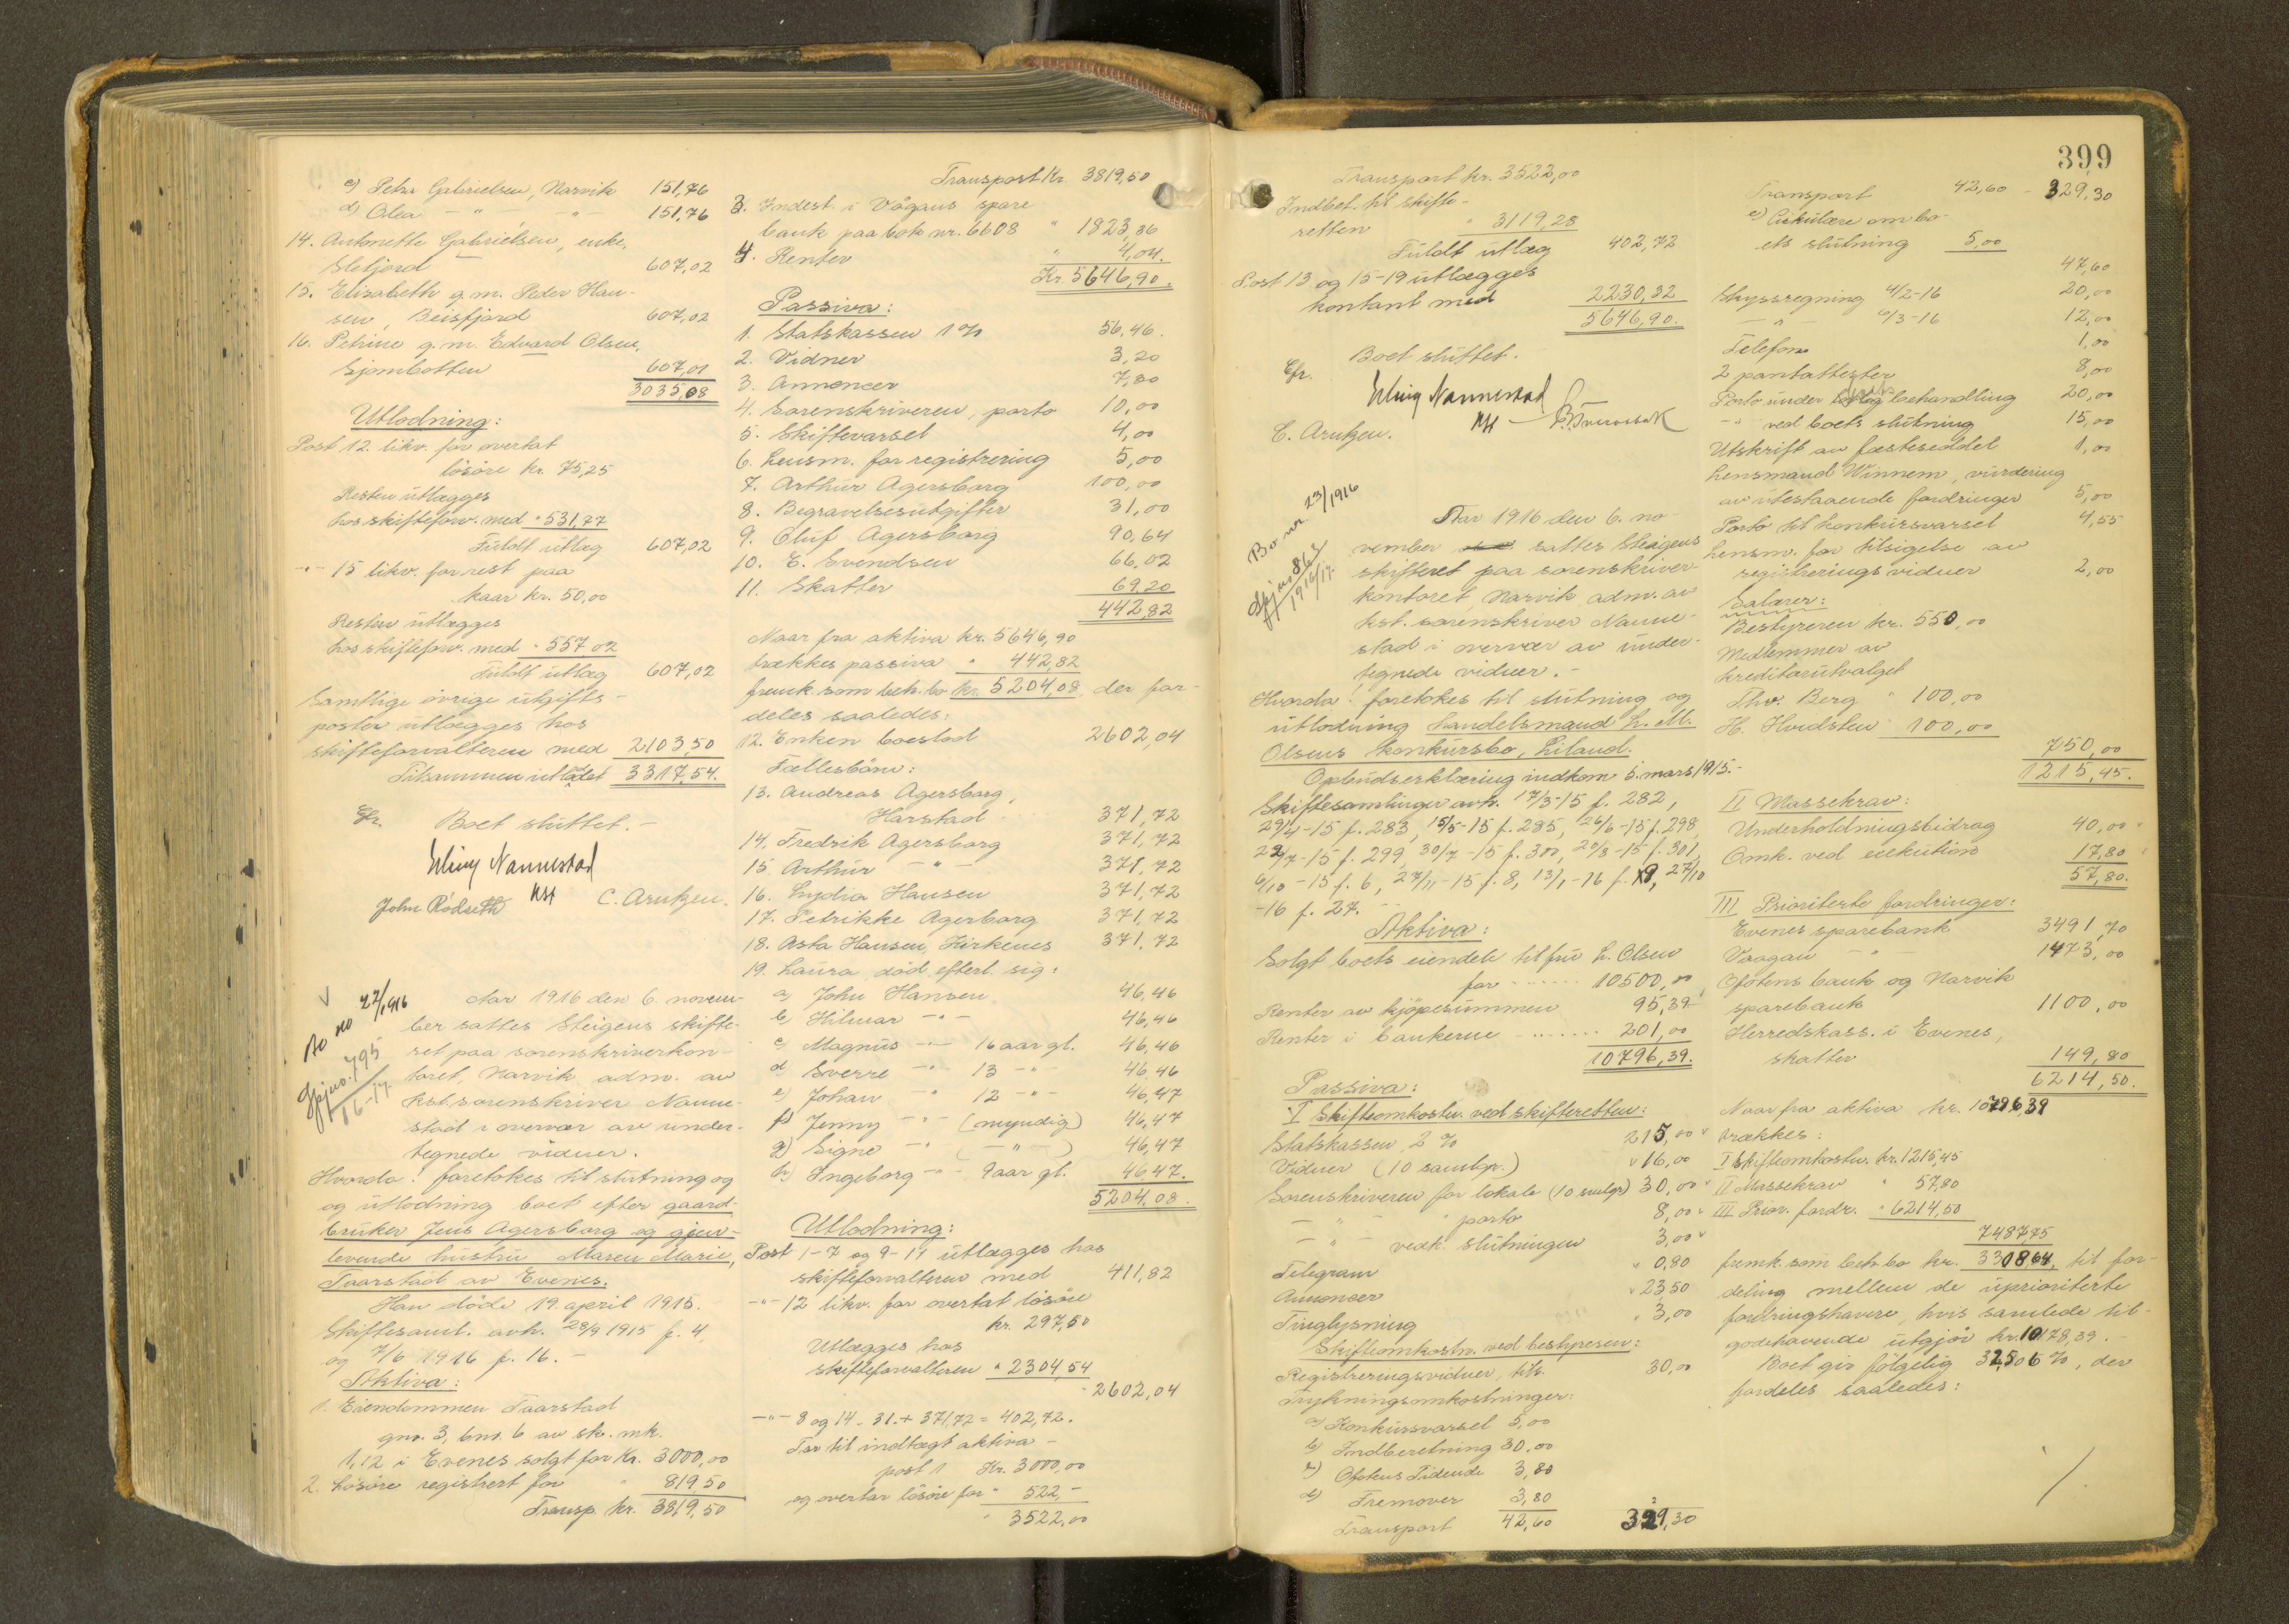 c) Petra Gabrielsen, Narvik 151,76
d) Olea — " — — " — 151,76
14. Antonette Gabrielsen, enke,
Slefjord 607,02
15. Elizabeth g.m. Peder Han-
sen, Beisfjord 607,02
16. Petrine g.m. Edvard Olsen,
Sjombotten 607,01
3035,08
Utlodning:
Post 12. likv. for overtat
lösöre kr. 75,25
Resten utlægges
hos skifteforv. med " 531,77
Fuldt utlæg 607,02
-"- 15 likv. for rest paa
kaar kr. 50,00
Resten utlægges
hos skifteforv. med " 557,02
Fuldt utlæg 607,02
Samtlige övrige utgifts-
poster utlægges hos
skifteforvalteren med 2103,50
Tilsammen utlodet 3317,54.
Boet sluttet.-
Erling Nannestad
Kst
John Rödseth C. Arntzen.
Bo no 22/1916
Gjno. 795
16-17.
Aar 1916 den 6. novem-
ber sattes Steigens skifte-
ret paa sorenskriverkon-
toret, Narvik adm. av
kst. sorenskriver Nanne-
stad i overvær av under-
tegnede vidner.
Hvorda! foretokes til slutning og
og utlodning boet efter gaard-
bruker Jens Agersborg og gjen-
levende hustru Maren Marie,
Taarstad av Evenes.
Han döde 19. april 1915.
Skiftesaml. avh. 28/9 1915 f. 4
og 7/6 1916 f. 16.-
Aktiva:
1. Eiendommen Taarstad
gno. 3, bno. 6 av sk. mk.
1,12 i Evenes solgt for Kr. 3000,00
2. Lösöre registrert for " 819,50
Transp. kr. 3819,50
Transport Kr. 3819,50
3. Indest. i Vågans spare
bank paa bok nr. 6608 " 1823,36
4. Renter " 4,04.
Kr. 5646,90.
Passiva:
1. Statskassen 1% 56,46.
2. Vidner 3,20
3. Annoncer 7,80
4. Sorenskriveren, porto 10,00
5. Skiftevarsel 4,00
6. Lensm. for registrering 5,00
7. Arthur Agersborg 100,00
8. Begravelsesutgifter 31,00
9. Oluf Agersborg 90,64
10. E. Evendsen 66,02
11. Skatter 69,20
442,82
Naar fra aktiva kr. 5646,90
trækkes passiva " 442,82
fremk. som beh. bo kr. 5204,08 der for-
deles saaledes:
12. Enken boeslod 2602,04
Fællesbörn:
13. Andreas Agersborg,
Harstad 371,72
14. Fredrik Agersborg 371,72
15. Arthur — " — 371,72
16. Lydia Hansen 371,72
17. Petrikke Agerborg 371,72
18. Asta Hansen, Kirkenes 371,72
19. Laura död, efterl. sig:
a) John Hansen 46,46
b) Hilmar -"- 46,46
c) Magnus -"- 16 aar gl. 46,46
d) Sverre -"- 13 -"- 46,46
e) Johan -"- 12 -"- 46,47
f) Jenny -"- (myndig) 46,47
g) Signe -"- ( -"- ) 46,47
h) Ingeborg -"- 9 aar gl. 46,47.
5204,08.
Utlodning:
Post 1-7 og 9-11 utlægges hos
skifteforvalteren med 411,82
-"- 12 likv. for overtat lösöre
kr. 297,50
Utlægges hos
skifteforvalteren " 2304,54
2602,04
-"- 8 og 14. 31.+ 371,72 = 402,72.
Tar til indtægt aktiva-
post 1 Kr. 3000,00
og overtar lösöre for " 522,-
3522,00
399
Transport kr. 3522,00
Indbet. til skifte-
retten " 3119,28
Fuldt utlæg 402,72
Post 13 og 15-19 utlægges
kontant med 2230,32
5646,90.
Boet sluttet.
Erling Nannestad
Kst
C. Arntzen.
Bo nr 23/1916
Gjno 863
1916/17.
Aar 1916 den 6. no-
vember sattes Steigens
skifteret paa sorenskriver-
kontoret, Narvik adm. av
kst. sorenskriver Nanne-
stad i overvær av under-
tegnede vidner.-
Hvorda! foretokes til slutning og
utlodning handelsmand L. M.
Olsens konkursbo, Liland.
Opbudserklæring indkom 5. mars 1915.-
Skiftesamlinger avh. 17/3-15 f. 282,
29/4-15 f. 283, 15/5-15 f. 285, 26/6-15 f. 298,
22/7-15 f. 299, 30/7-15 f. 300, 20/8-15 f. 301,
6/10-15 f. 6, 27/11-15 f. 8, 13/1-16 f. 9, 27/10
-16 f. 27.
Aktiva:
Solgt boets eiendele til fru L. Olsen
for ...... 10500,00
Renter av kjöpesummen 95,39
Renter i bankerne ...... 201,00
10796,39.
Passiva:
I Skifteomkostn. ved skifteretten:
Statskassen, 2% 215,00
Vidner (10 samlgr.) 16,00
Sorenskriveren for lokale (10 smlgr) 30,00
— " — " porto 8,00
— " — vedk. slutningen 3,00
Telegram 0,80
Annoncer 23,50
Tinglysning 3,00
Skifteomkostn. ved bestyreren:
Registreringsvidner, tils. 30,00
Trykningsomkostninger:
a) Konkursvarsel 5,00
b) Indberetning 30,00
c) Ofotens Tidende 3,80
d) Fremover 3,80
Transport 42,60 329,30
Transport 42,60 - 329,30
e) Cirkulære om bo-
ets slutning 5,00
47,60
Skyssregning 4/2-16 20,00
— " — 6/3-16 12,00
Telefon 1,00
2 pantattester 8,00
Porto under boets behandling 20,00
-"- ved boets slutning 15,00
Utskrift av fæsteseddel 1,00
Lensmand Winnem, vurdering
av utestaaende fordringer 5,00
Porto til konkursvarsel 4,55
Lensm. for tilsigelse av
registreringsvidner 2,00
Salærer:
Bestyreren kr. 550,00
Medlemmer av
kreditorutvalget
Thv. Berg " 100,00
H. Hvidsten " 100,00
750,00
1215,45.
II Massekrav:
Underholdningsbidrag 40,00
Omk. ved exekution 17,80
57,80.
III Prioriterte fordringer:
Evenes sparebank 3491,70
Vaagan — " — 1473,00
Ofotens bank og Narvik
sparebank 1100,00
Herredskass. i Evenes,
skatter 149,80
6214,50.
Naar fra aktiva kr. 10796,39
trækkes:
I Skifteomkostn. kr. 1215,45
II Massekrav " 57,80
III Prior. fordr. " 6214,50
7487,75
fremk. som beh. bo kr. 3308,64, til for-
deling mellem de uprioriterte
fordringshavere, hvis samlede til-
godehavende utgjör kr. 10178,39.-
Boet gir fölgelig 32,506%, der
fordeles saaledes: